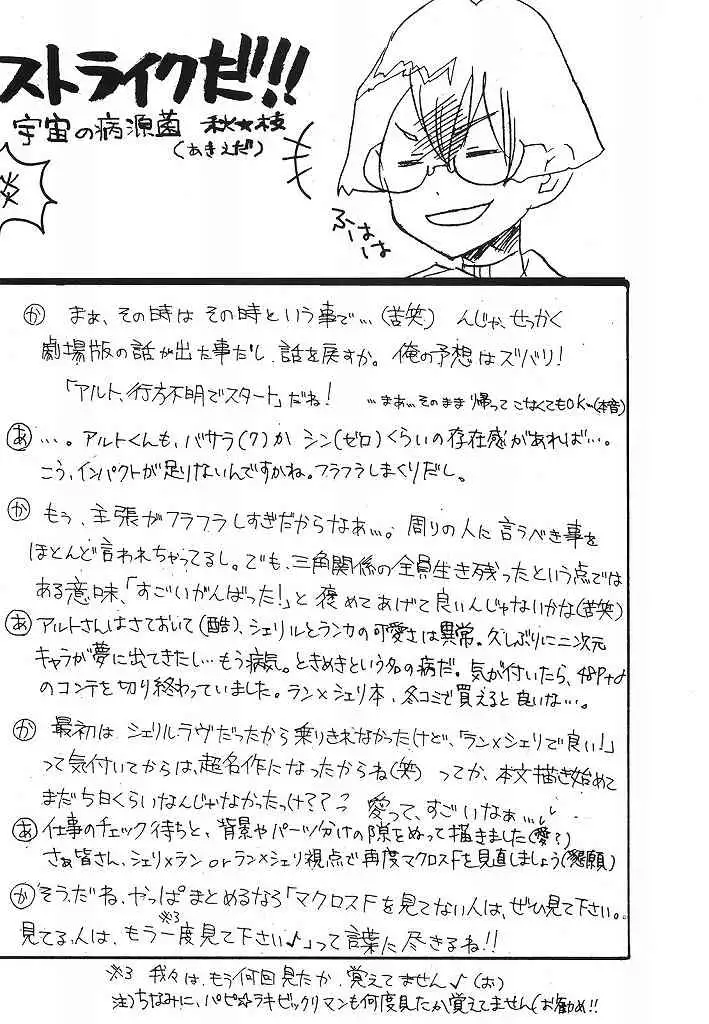 ストライクだ!!!
宇宙の病源菌 秋★枝
(あきえだ)
炎
ふーはは
か まぁ、その時は その時という事で…(苦笑) んじゃ、せっかく
劇場版の話が出た事だし、話を戻すか。俺の予想はズバリ!
「アルト、行方不明でスタート」だね! …まぁ…そのまま帰ってこなくてもOK…(本音)
あ …。アルトくんも、バサラ(7)か シン(ゼロ)くらいの存在感があれば…。
こう、インパクトが足りないんですかね。フラフラしまくりだし。
か もう、主張がフラフラしすぎだからなぁ…。周りの人に言うべき事を
ほとんど言われちゃってるし。でも、三角関係の全員生き残ったという点では
ある意味、「すごいがんばった!」と褒めてあげて良いんじゃないかな(苦笑)
あ アルトさんはさておいて(酷)、シェリルとランカの可愛さは異常。久しぶりに二次元
キャラが夢に出てきたし…もう病気。ときめきという名の病だ。気が付いたら、48P+α
のコンテを切り終わっていました。ラン×シェリ本、冬コミで買えると良いな…。
か 最初は シェリルラヴだったから乗りきれなかったけど、「ラン×シェリで良い!」
って気付いてからは、超名作になったからね(笑) ってか、本文描き始めて
まだち日くらいなんじゃなかったっけ??? 愛って、すごいなぁ…
あ 仕事のチェック待ちと、背景やパーツ分けの隙をぬって描きました(愛?)
さぁ皆さん、シェリ×ラン or ラン×シェリ視点で再度マクロスFを見直しましょう(懇願)
か そうだね、やっぱまとめるなら「マクロスFを見てない人は、ぜひ見て下さい。
見てる人は、もう一度※3見て下さい♪」って言葉に尽きるね!!
※3 我々は、もう何回見たか、覚えてません♪(お)
注)ちなみに、パピ☆ラキビックリマンも何度見たか覚えてません(お勧め!!